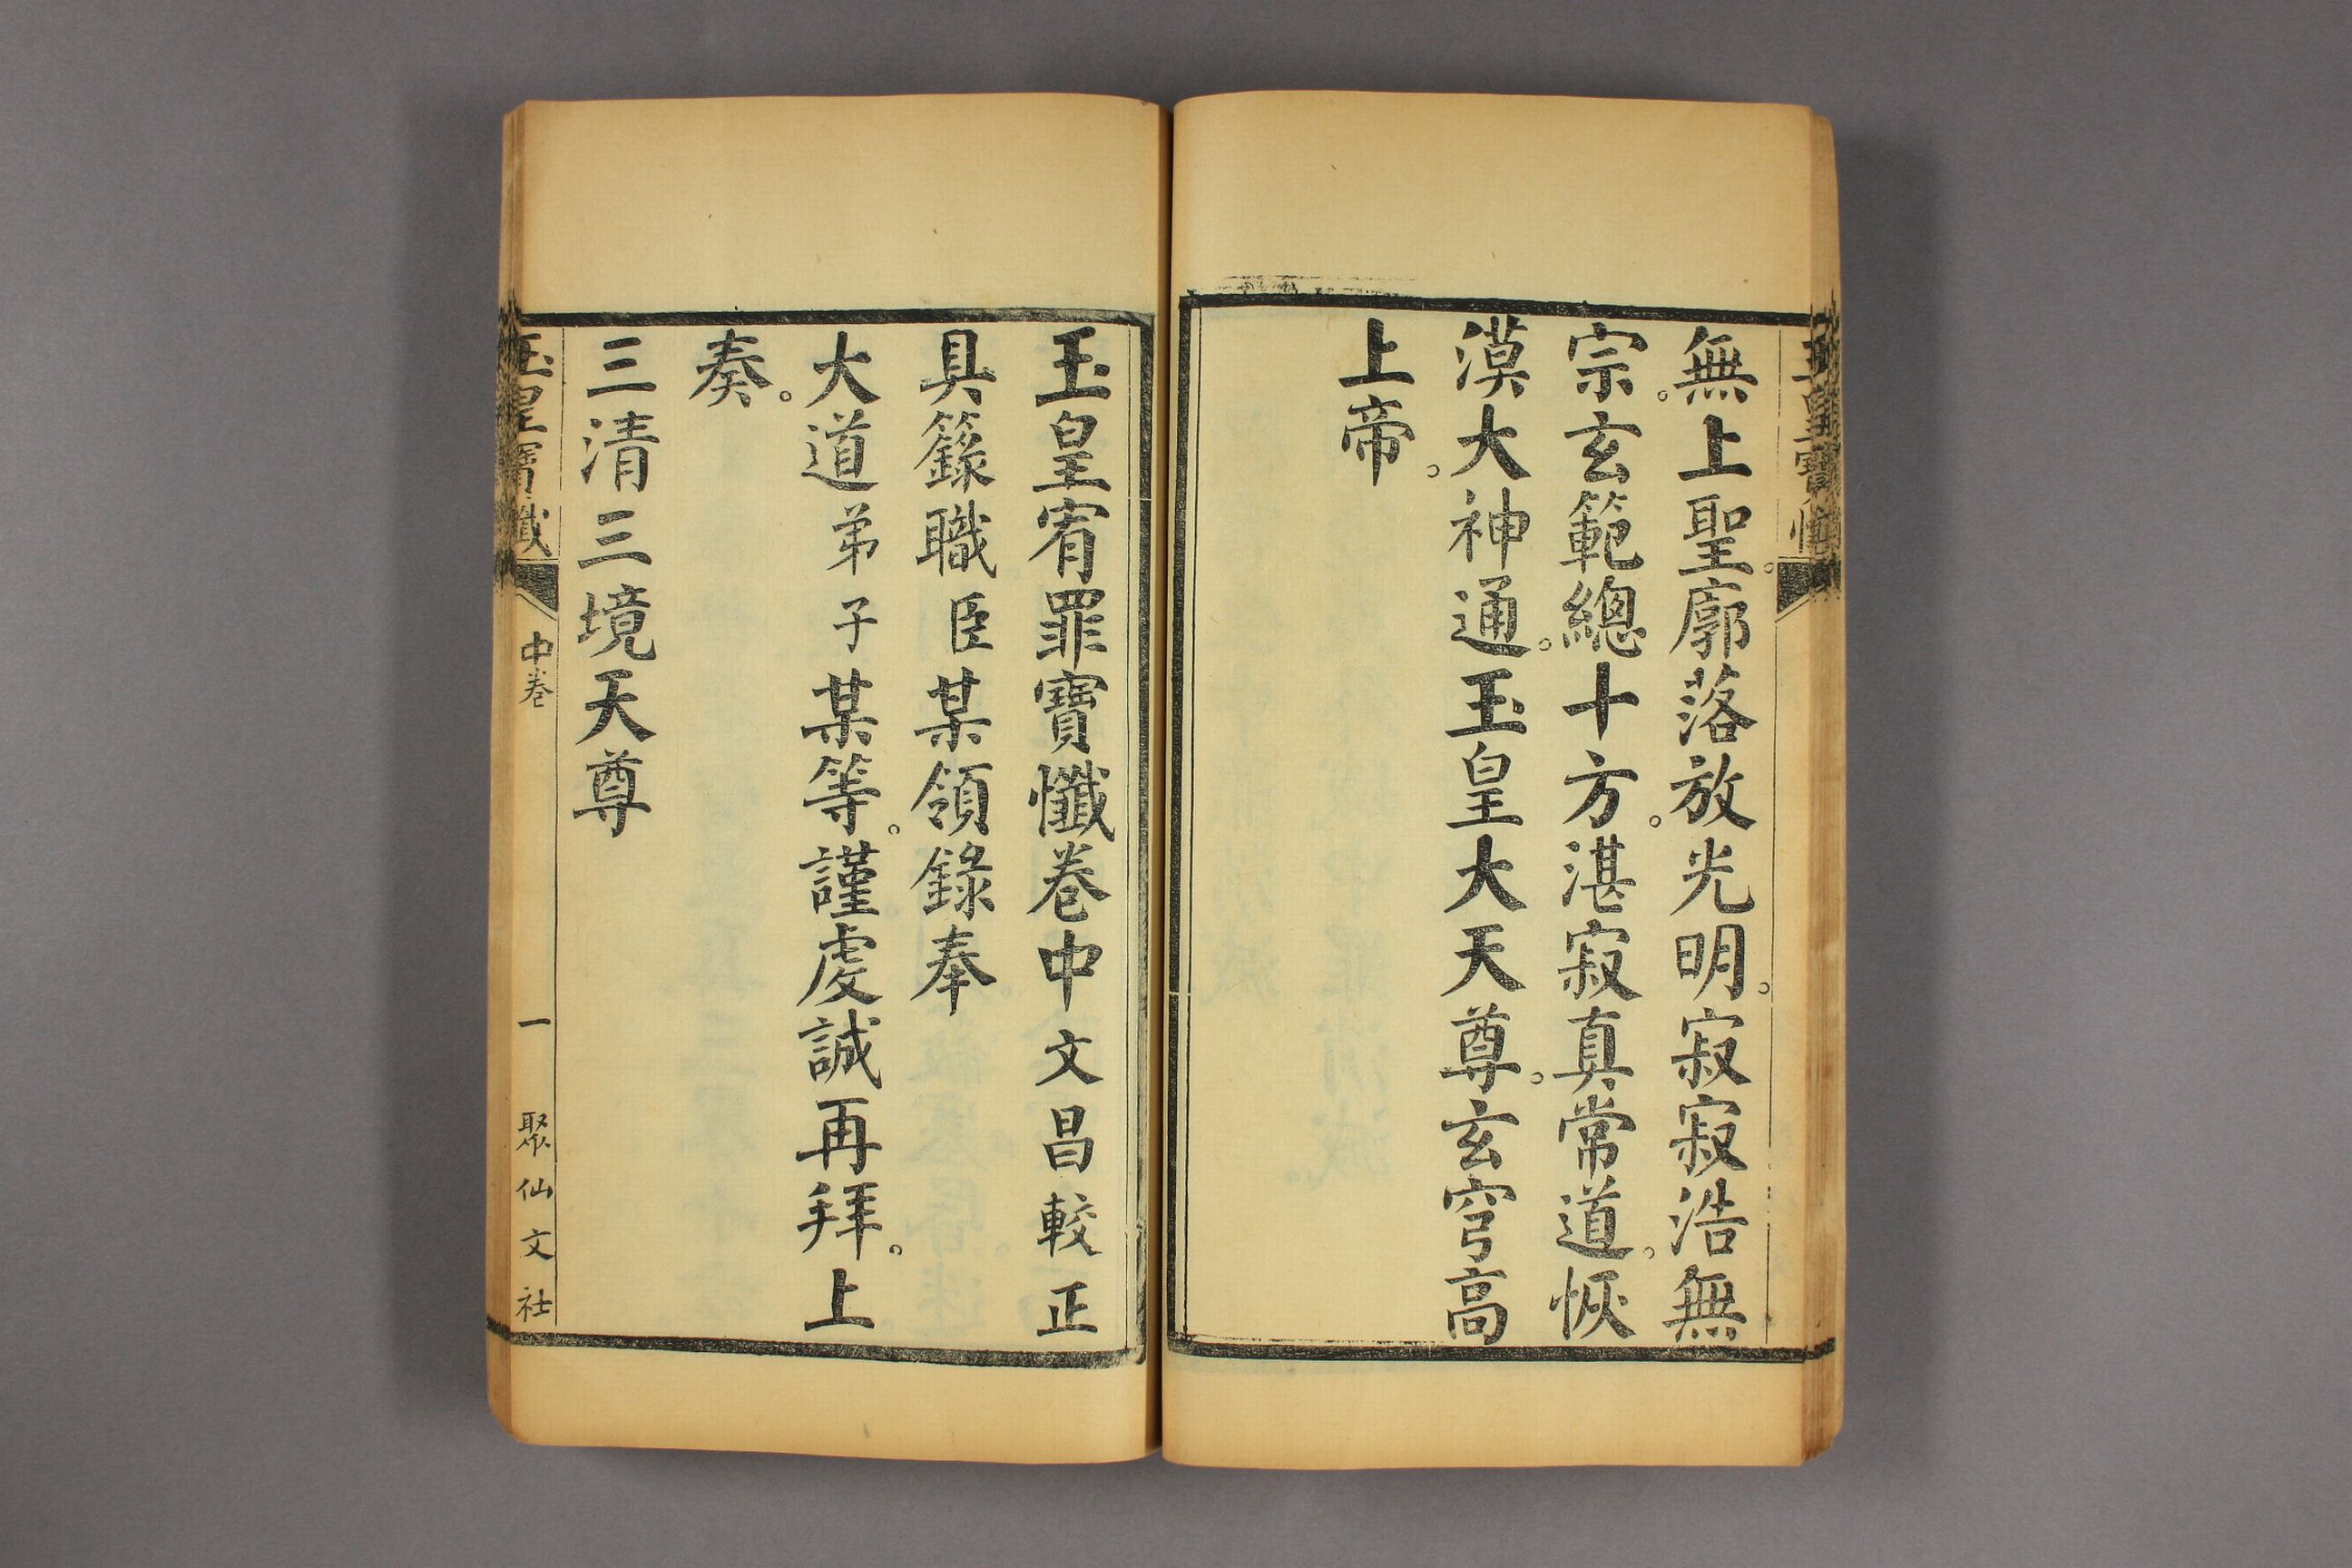 無上聖。廓落放光明。寂寂浩無
宗。玄範總十方。湛寂真常道。恢
漠大神通。玉皇大天尊。玄穹高
上帝。
玉皇宥罪寶懺卷中文昌較正
具籙職臣某領錄奉
大道弟子某等。謹虔誠再拜。上
奏。
三清三境天尊
玉皇寶懺
中卷
一
聚仙文社